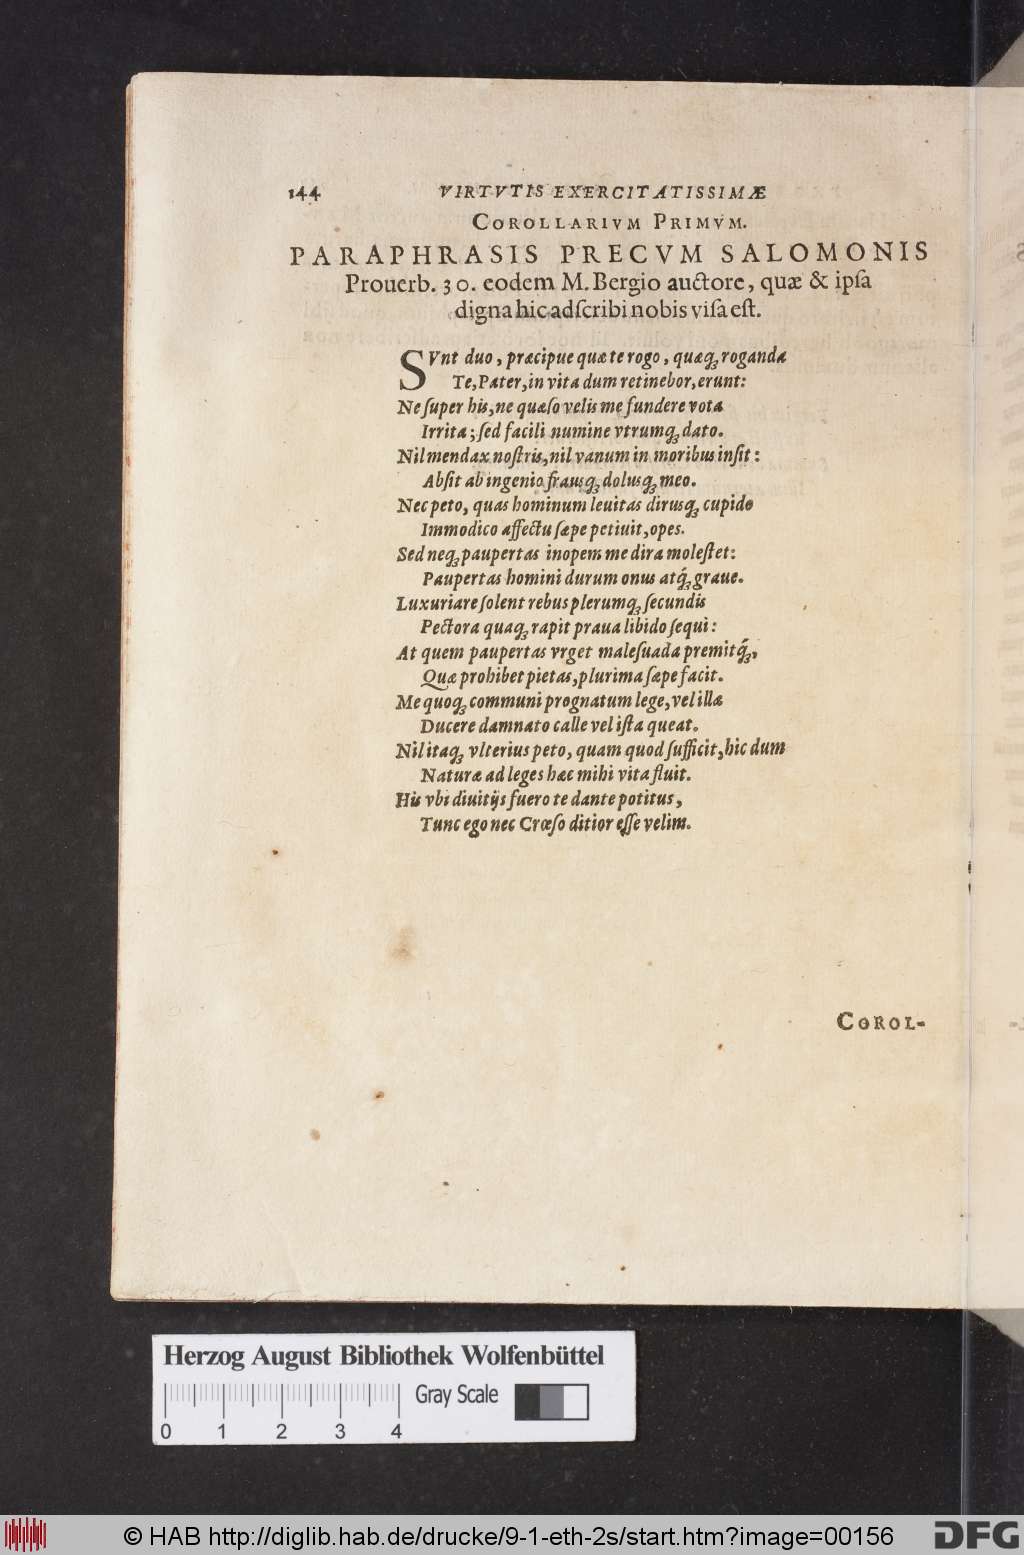 144 VIRTVTIS EXERCITATISSIMÆ
COROLLARIVM PRIMVM.
PARAPHRASIS PRECVM SALOMONIS
Prouerb. 30. eodem M. Bergio auctore, quæ & ipſa
digna hic adſcribi nobis viſa eſt.
SVnt duo, præcipue quæ te rogo, quæq́; roganda
Te, Pater, in vita dum retinebor, erunt:
Ne ſuper his, ne quæſo velis me fundere vota
Irrita; ſed facili numine vtrumq; dato.
Nil mendax noſtris, nil vanum in moribus inſit:
Abſit ab ingenio frausq; dolusq; meo.
Nec peto, quas hominum leuitas dirusq; cupido
Immodico affectu ſæpe petiuit, opes.
Sed neq; paupertas inopem me dira moleſtet:
Paupertas homini durum onus atq́; graue.
Luxuriare ſolent rebus plerumq; ſecundis
Pectora quaq; rapit praua libido ſequi:
At quem paupertas vrget maleſuada premitq́;,
Quæ prohibet pietas, plurima ſæpe facit.
Me quoq; communi prognatum lege, vel illæ
Ducere damnato calle vel iſta queat.
Nil itaq; vlterius peto, quam quod ſufficit, hic dum
Naturæ ad leges hæc mihi vita fluit.
His vbi diuitijs fuero te dante potitus,
Tunc ego nec Crœſo ditior eſſe velim.
COROL-
Herzog August Bibliothek Wolfenbüttel
Gray Scale
0 1 2 3 4
© HAB http://diglib.hab.de/drucke/9-1-eth-2s/start.htm?image=00156
DFG